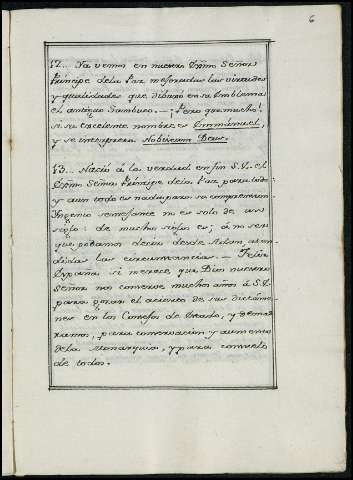 6
12.. Ya vemos en nuestro Exmo. Señor
Principe de la Paz mejoradas las virtudes
y qualidades que dibuxó en su Emblema
el antiguo Sambuco. — ¡Pero que mucho!
si su excelente nombre es Emmánuel,
y se interpreta Nobiscum Deus.
13.. Nació á la verdad en fin S. E. el
Exmo Señor Principe de la Paz para todo:
y aun todo es nada para su comprension.
Ingenio semejante no es solo de un
siglo: de muchos siglos es; á no ser
que podamos decir desde Adan aten-
didas las circunstancias. — Feliz
España si merece, que Dios nuestro
Señor nos conserve muchos años á S. E.
para gozar el acierto de sus dictáme-
nes en los Consejos de Estado, y demas
rumos, para conservacion y aumento
de la Monarquia, y para consuelo
de todos.